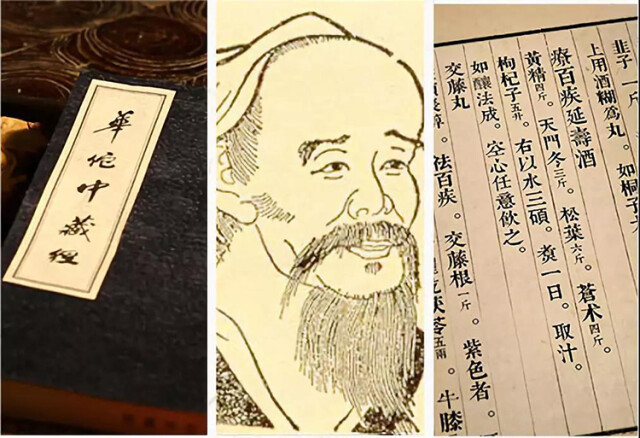 華佗中藏經
韭子一斤
上用酒糊為丸。如桐子大
療百疾延壽酒
黃精四斤。天門冬三斤。松葉六斤。蒼术四斤。
枸杞子五升。右以水三碩。煑一日。取汁。
如釀法成。空心任意飲之。
交藤丸
祛百疾。交藤根一斤。紫色者。
茯苓五兩。牛膝